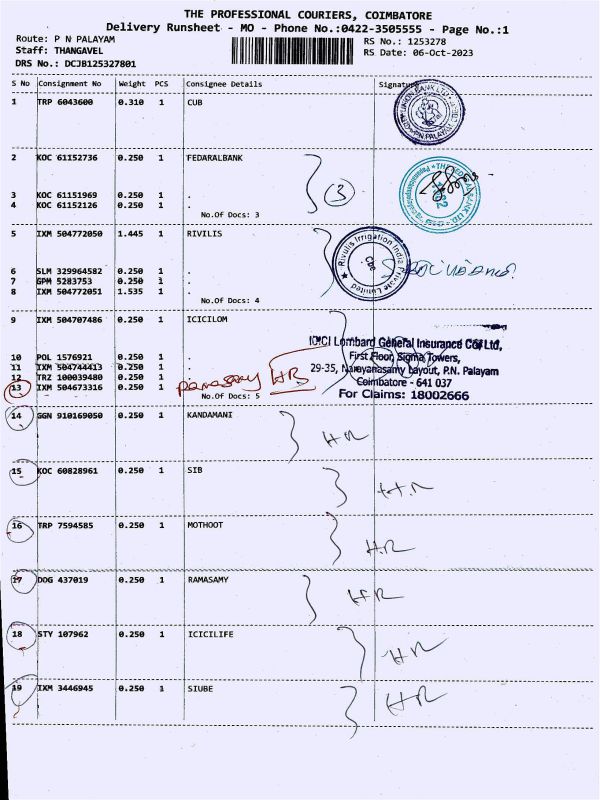 THE PROFESSIONAL COURIERS, COIMBATORE
Delivery Runsheet - MO - Phone No.:0422-3505555 - Page No.:1
Route: P N PALAYAM
RS No.: 1253278
Staff: THANGAVEL
RS Date: 06-Oct-2023
DRS No.: DCJB125327801
S No Consignment No Weight PCS Consignee Details Signature
1 TRP 6043600 0.310 1 CUB
2 KOC 61152736 0.250 1 FEDARALBANK
3 KOC 61151969 0.250 1 .
4 KOC 61152126 0.250 1 .
3
No.Of Docs: 3
5 IXM 504772050 1.445 1 RIVILIS
Rivulis Irrigation India Private Limited
CBE
6 SLM 329964582 0.250 1 .
7 GPM 5283753 0.250 1 .
8 IXM 504772051 1.535 1 .
No.Of Docs: 4
9 IXM 504707486 0.250 1 ICICILOM
ICICI Lombard General Insurance Co. Ltd,
First Floor, Sigma Towers,
29-35, Narayanasamy Layout, P.N. Palayam
Coimbatore - 641 037
For Claims: 18002666
10 POL 1576921 0.250 1 .
11 IXM 504744413 0.250 1 .
12 TRZ 100039480 0.250 1 .
13 IXM 504673316 0.250 1 .
Ramasamy HR
No.Of Docs: 5
14 GGN 910169050 0.250 1 KANDAMANI
HR
15 KOC 60828961 0.250 1 SIB
H.R
16 TRP 7594585 0.250 1 MOTHOOT
H.R
17 DOG 437019 0.250 1 RAMASAMY
HR
18 STY 107962 0.250 1 ICICILIFE
HR
19 IXM 3446945 0.250 1 SIUBE
HR